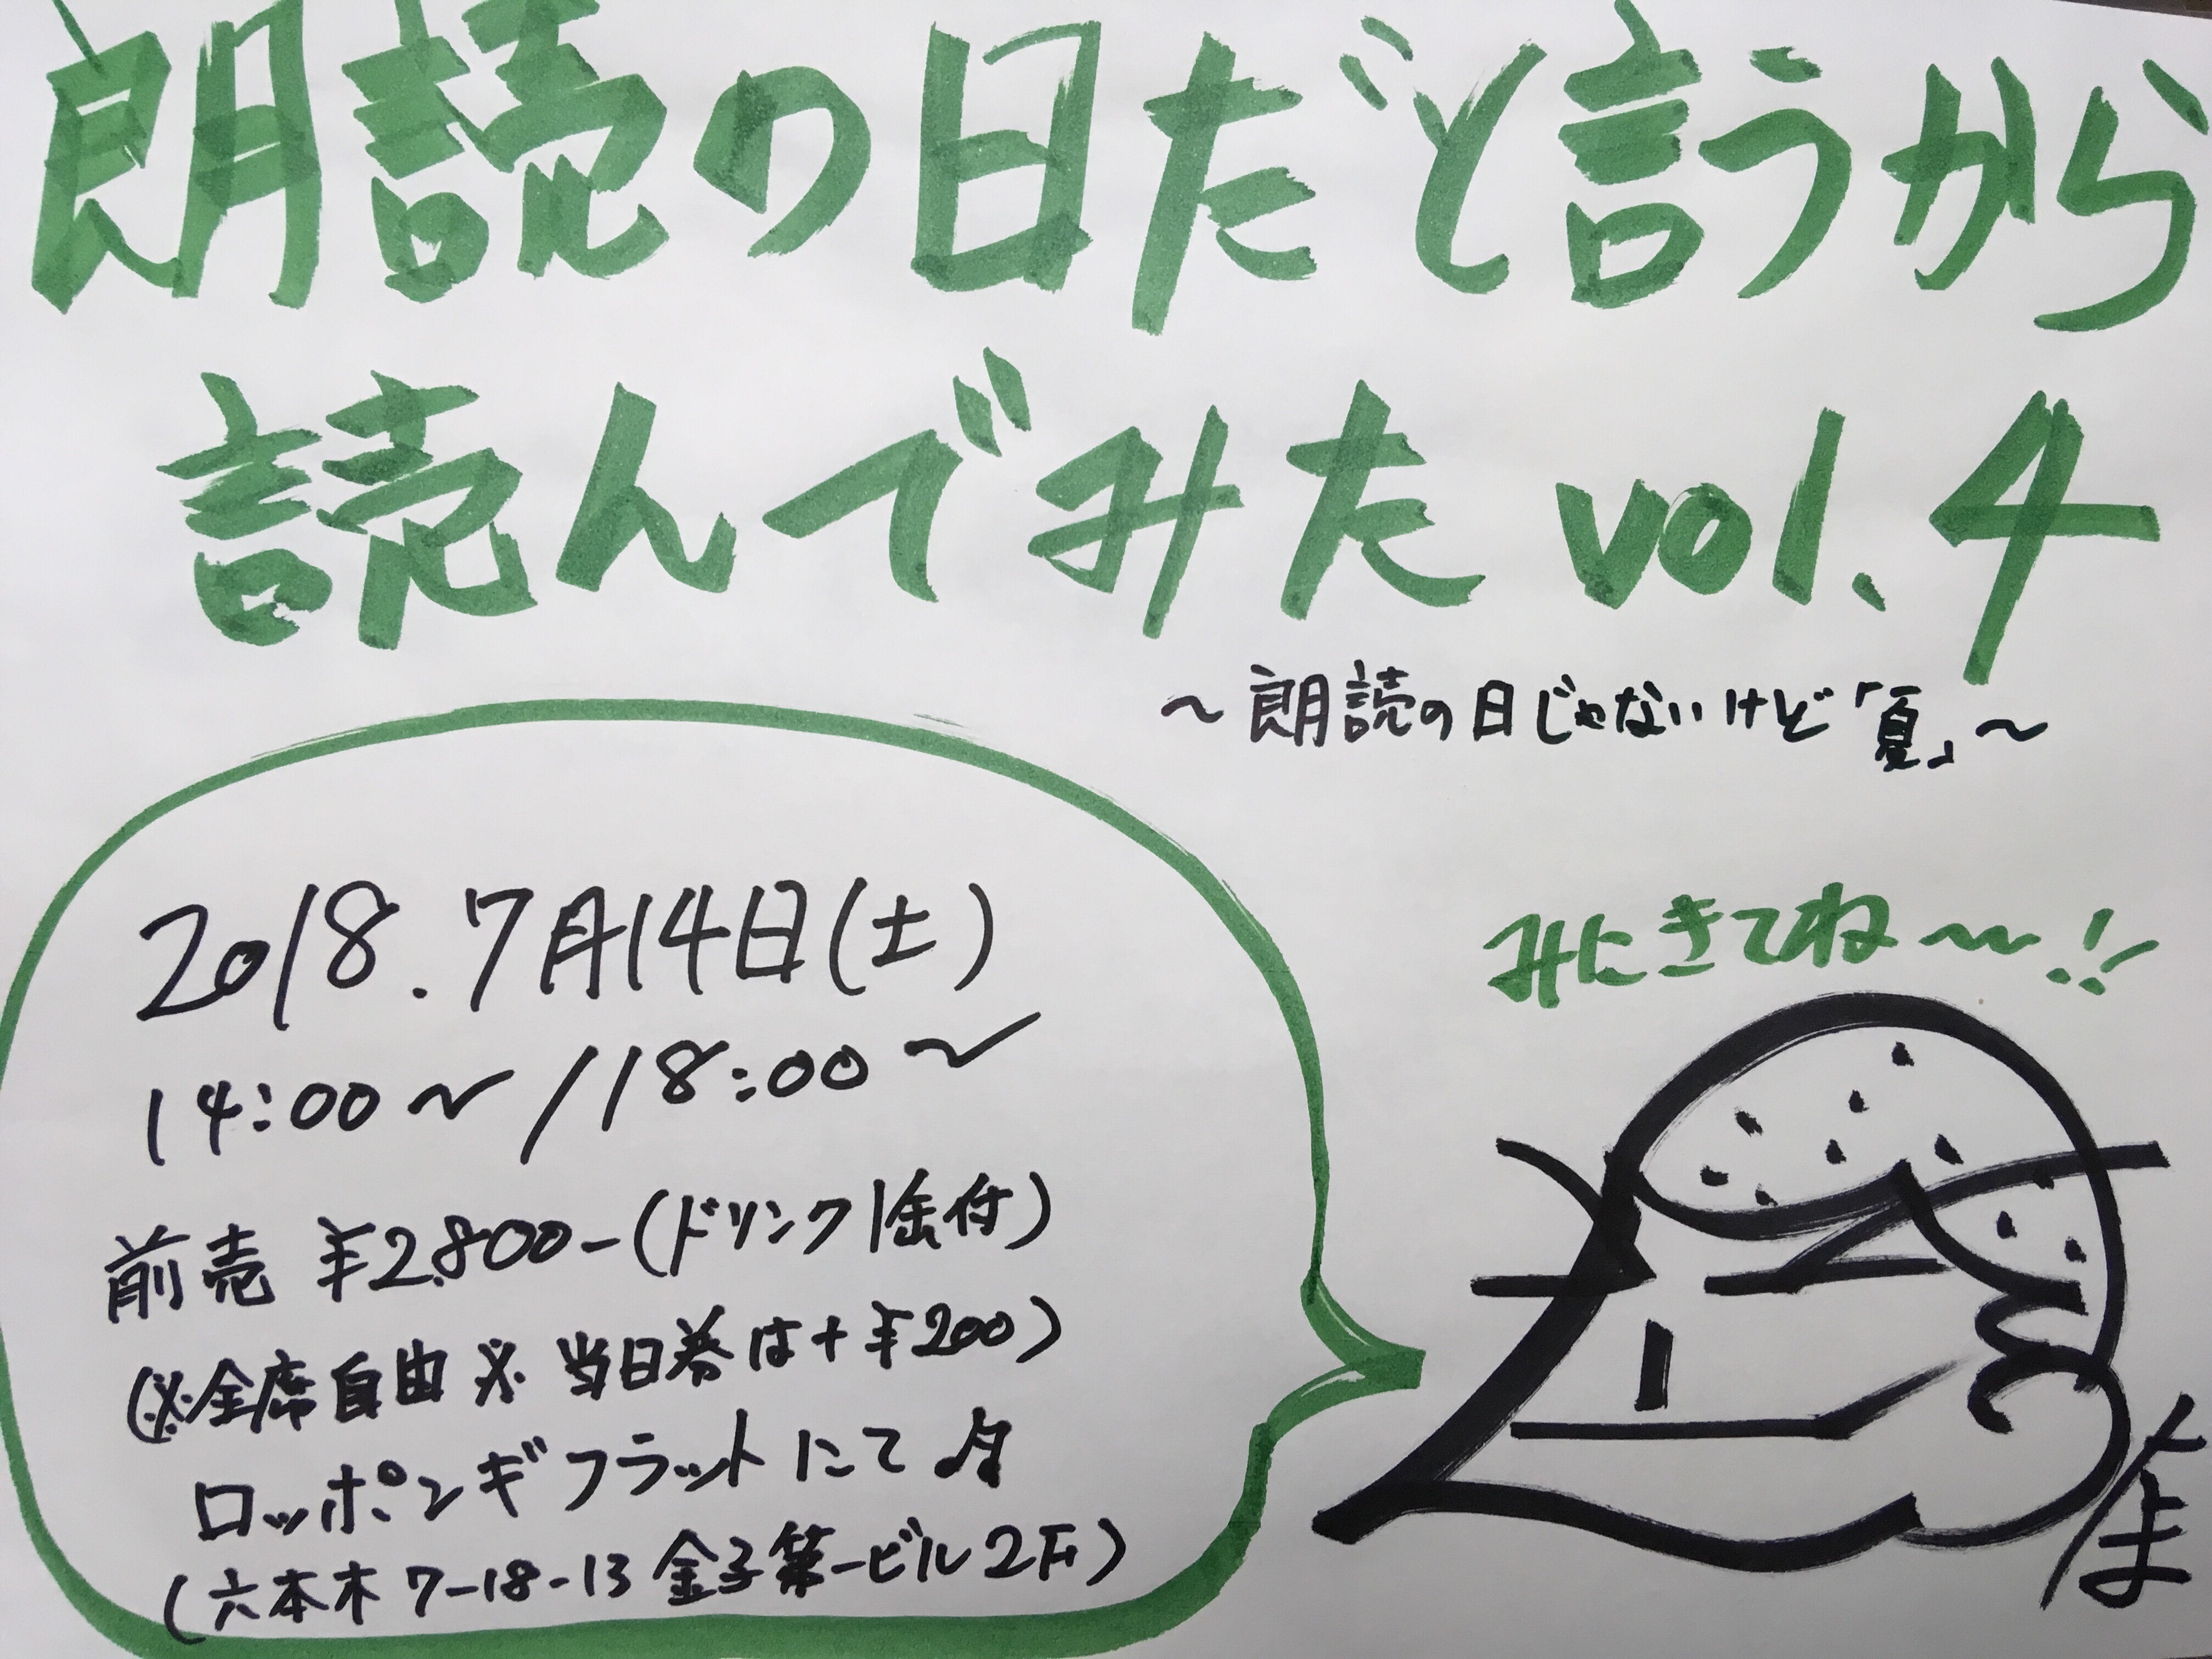 朗読の日だと言うから
読んでみた vol.4
～朗読の日じゃないけど「夏」～
2018.7月14日(土)
14:00～/18:00～
前売 ¥2,800-(ドリンク1缶付)
(※全席自由※ 当日券は+¥200)
ロッポンギフラットにて♬
(六本木 7-18-13 金子第一ビル2F)
みにきてね～～!!